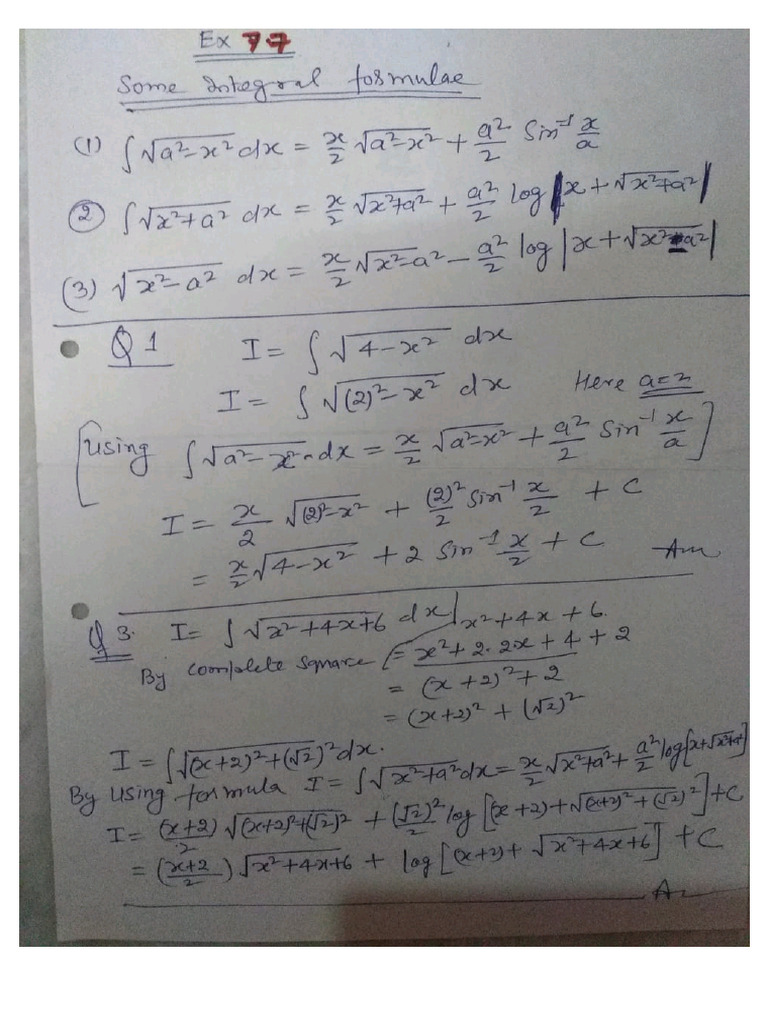 Ex 7.7
Some Integral formulae
(1) ∫√a²-x² dx = x/2 √a²-x² + a²/2 Sin⁻¹ x/a
(2) ∫√x²+a² dx = x/2 √x²+a² + a²/2 log |x + √x²+a²|
(3) √x²-a² dx = x/2 √x²-a² - a²/2 log |x + √x²-a²|
Q 1 I = ∫ √4-x² dx
I = ∫ √(2)²-x² dx Here a=2
[Using ∫√a²-x² dx = x/2 √a²-x² + a²/2 Sin⁻¹ x/a]
I = x/2 √(2)²-x² + (2)²/2 Sin⁻¹ x/2 + C
= x/2 √4-x² + 2 Sin⁻¹ x/2 + C Ans
Q 3. I = ∫ √x²+4x+6 dx | x²+4x+6.
By complete square = x²+2.2x+4+2
= (x+2)²+2
= (x+2)² + (√2)²
I = ∫√(x+2)²+(√2)² dx.
By using formula I = ∫√x²+a² dx = x/2 √x²+a² + a²/2 log[x+√x²+a²]
I = (x+2)/2 √(x+2)²+(√2)² + (√2)²/2 log [(x+2)+√(x+2)²+(√2)²]+C
= (x+2/2) √x²+4x+6 + log [(x+2)+ √x²+4x+6] + C
Ans